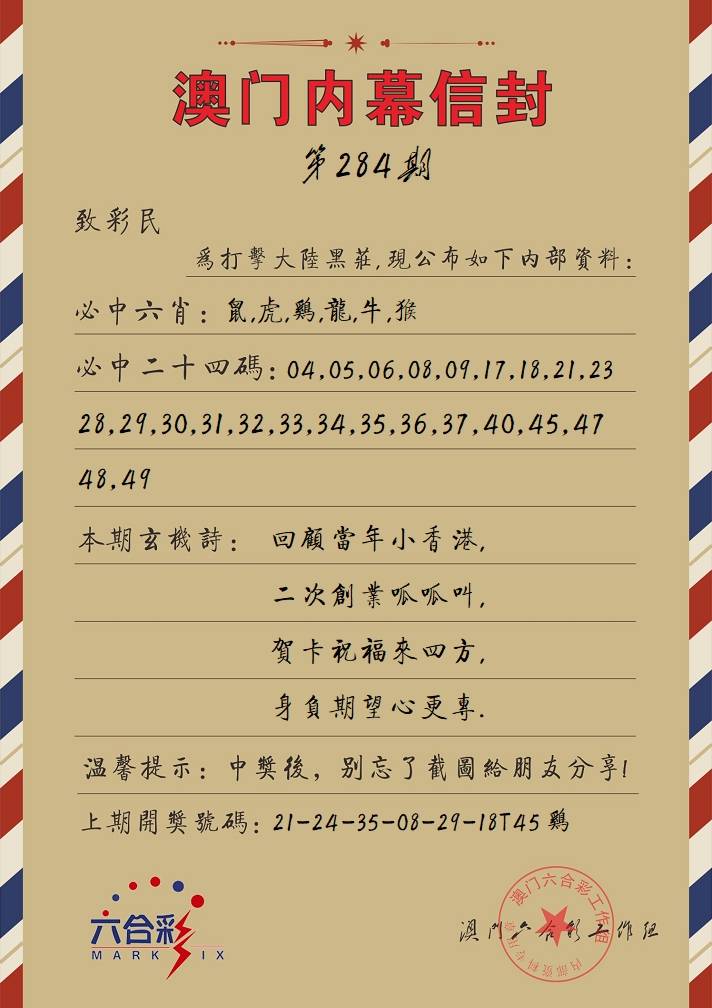 澳门内幕信封
第284期
致彩民
爲打擊大陸黑莊,現公布如下内部資料:
必中六肖:鼠,虎,鷄,龍,牛,猴
必中二十四碼:04,05,06,08,09,17,18,21,23
28,29,30,31,32,33,34,35,36,37,40,45,47
48,49
本期玄機詩: 回顧當年小香港,
二次創業呱呱叫,
賀卡祝福來四方,
身負期望心更專.
温馨提示:中獎後,别忘了截圖給朋友分享!
上期開獎號碼:21-24-35-08-29-18T45 鷄
六合彩
MARK SIX
澳门六合彩工作组
澳门六合彩工作组
内部资料专用章